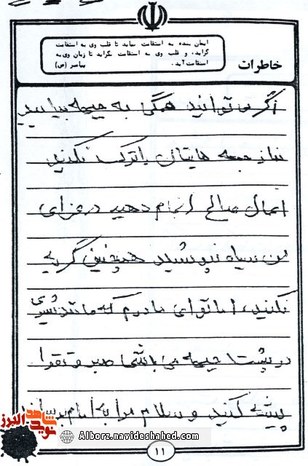 ایمان بنده به استقامت نیاید تا قلب وی به استقامت
گراید، و قلب وی به استقامت نگراید تا زبان وی به
استقامت آید.
پیامبر (ص)
خاطرات
اگر می‌توانید همگی به جبهه بیایید
نماز جمعه هایتان را ترک نکنید
اعمال صالح انجام دهید در عزای
من سیاه نپوشید همچنین گریه
نکنید، اما تو ای مادرم که مانند شیری
در پشت جبهه می باشی شما صبر و تقوا
پیشه کنید و سلام مرا به امام برسانید
شاهد البرز
نوید
Alborz.navideshahed.com
۱۱